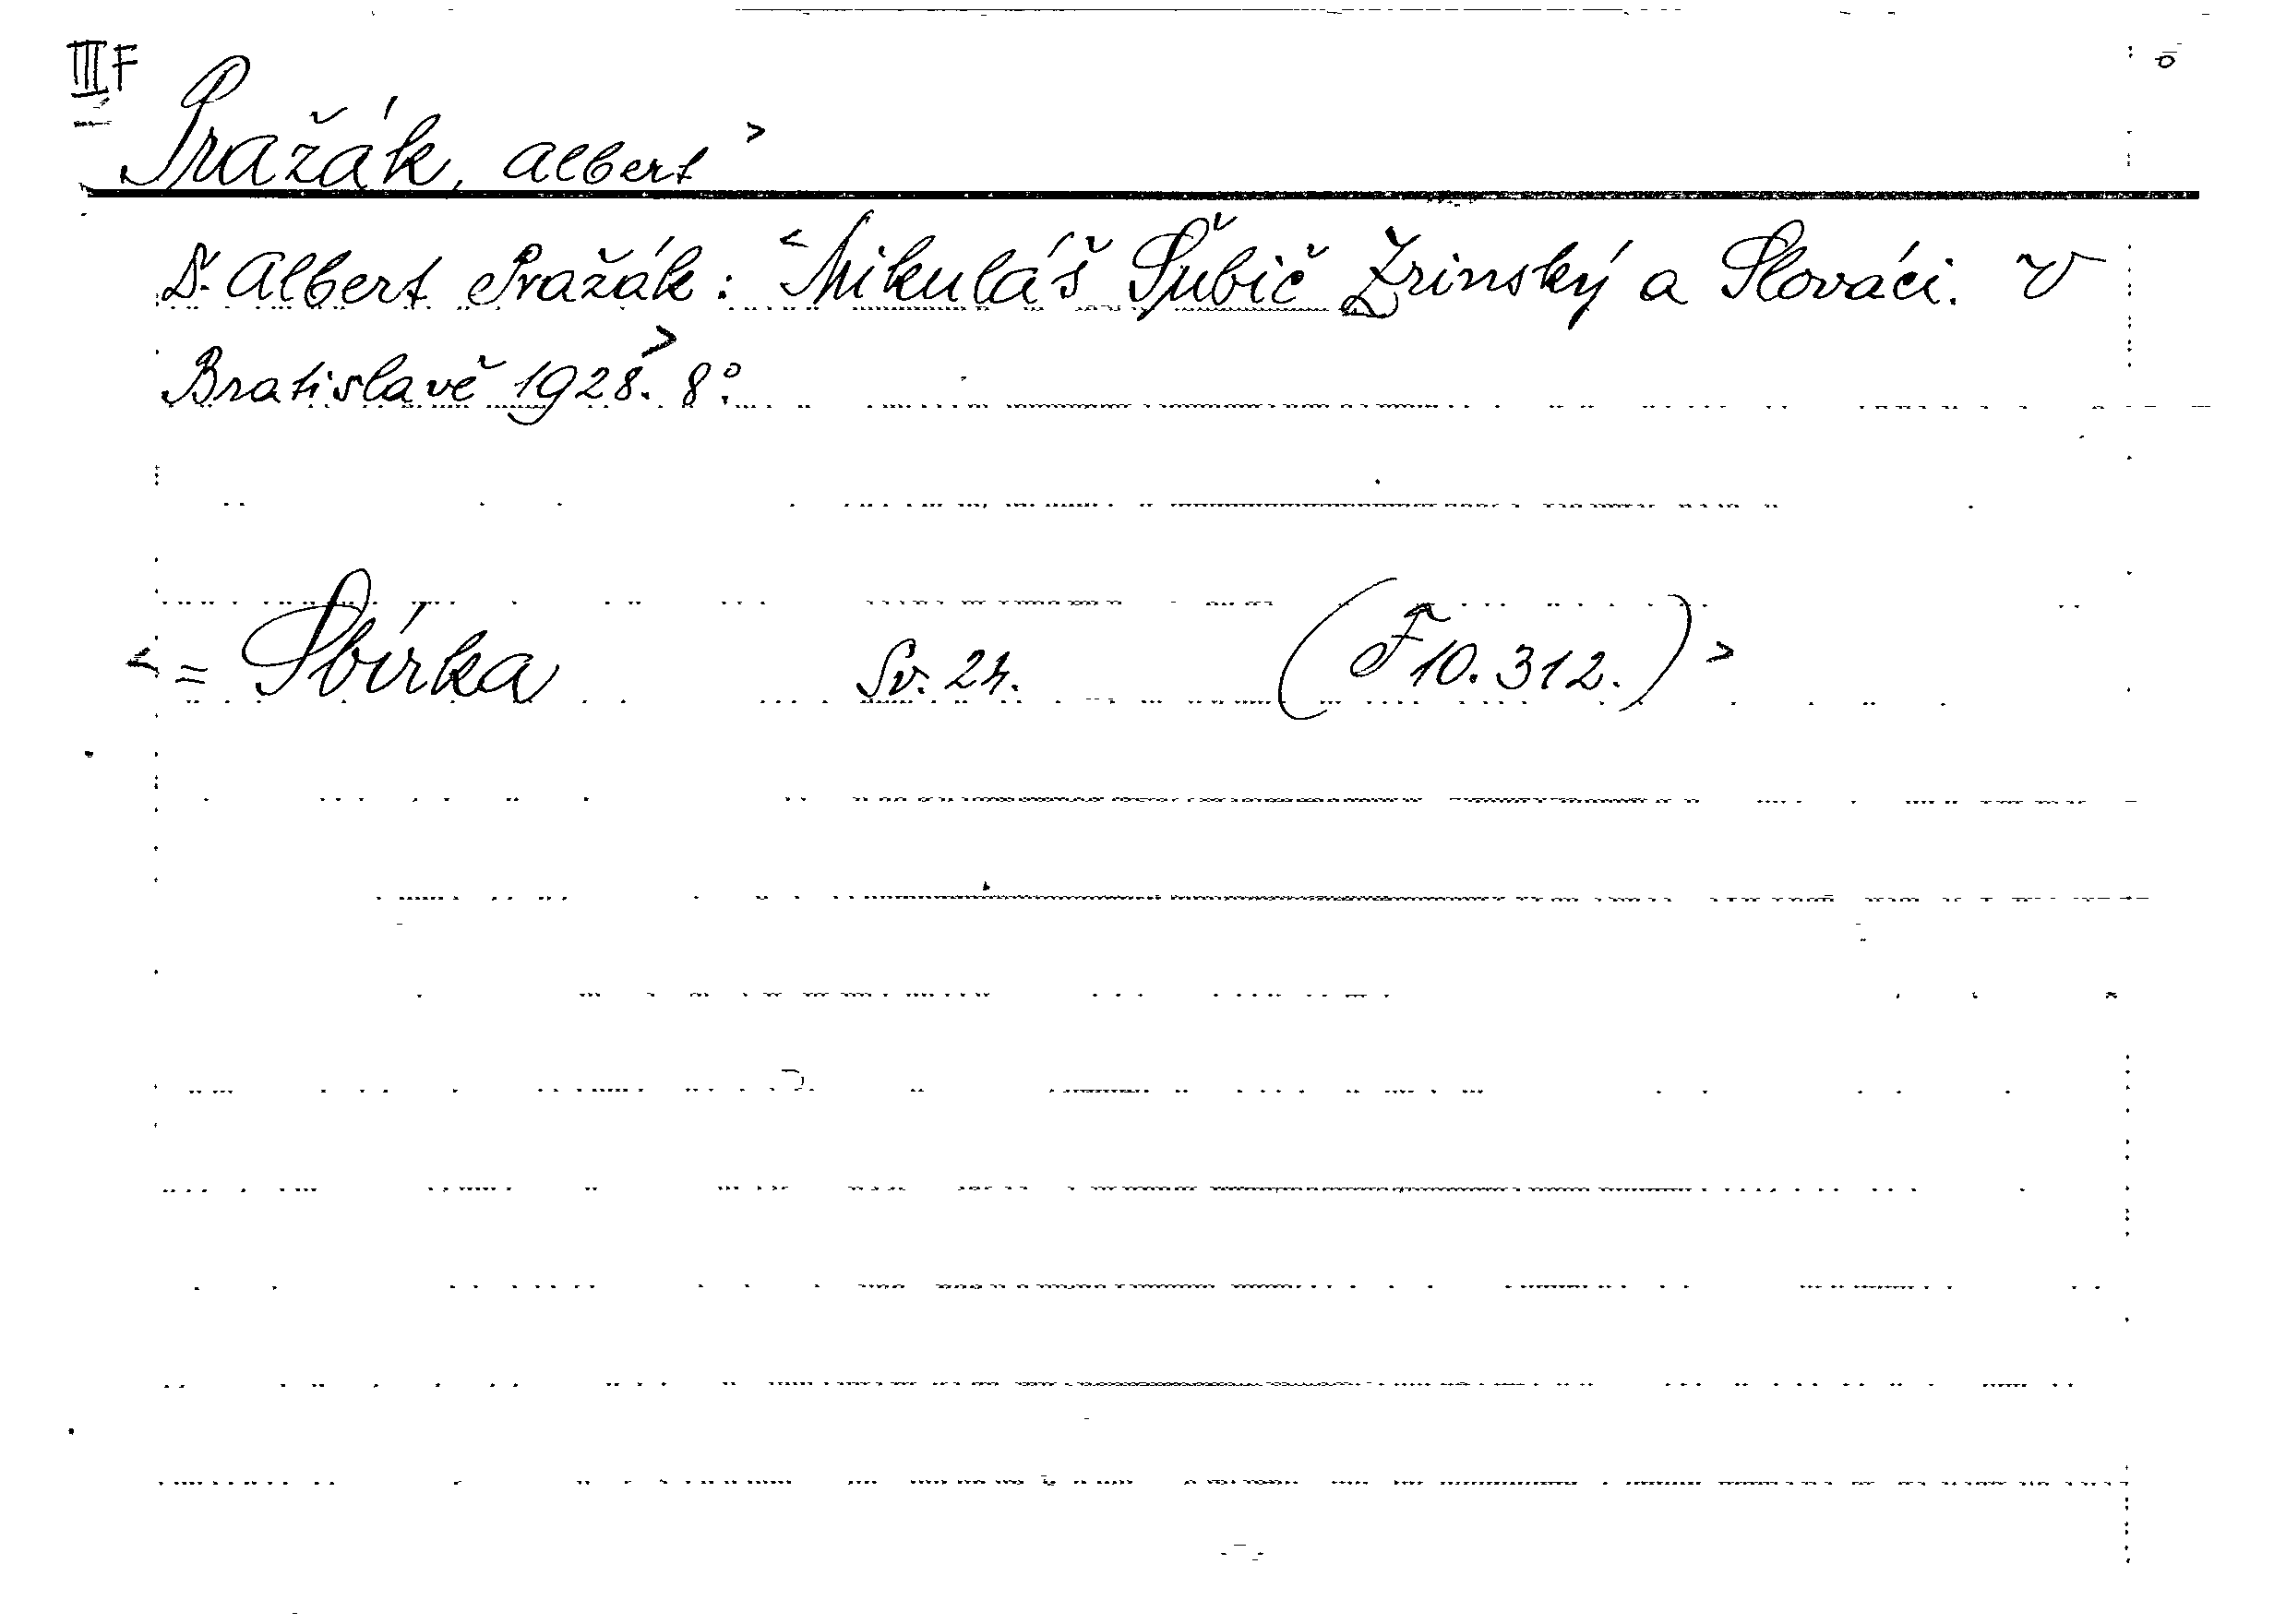 III F
Pražák, Albert >
Dr. Albert Pražák: < Mikuláš Šubič Zrinský a Slováci. V
Bratislavě 1928. > 8°.
< = Sbírka Sv. 24. (F 10.312.) >